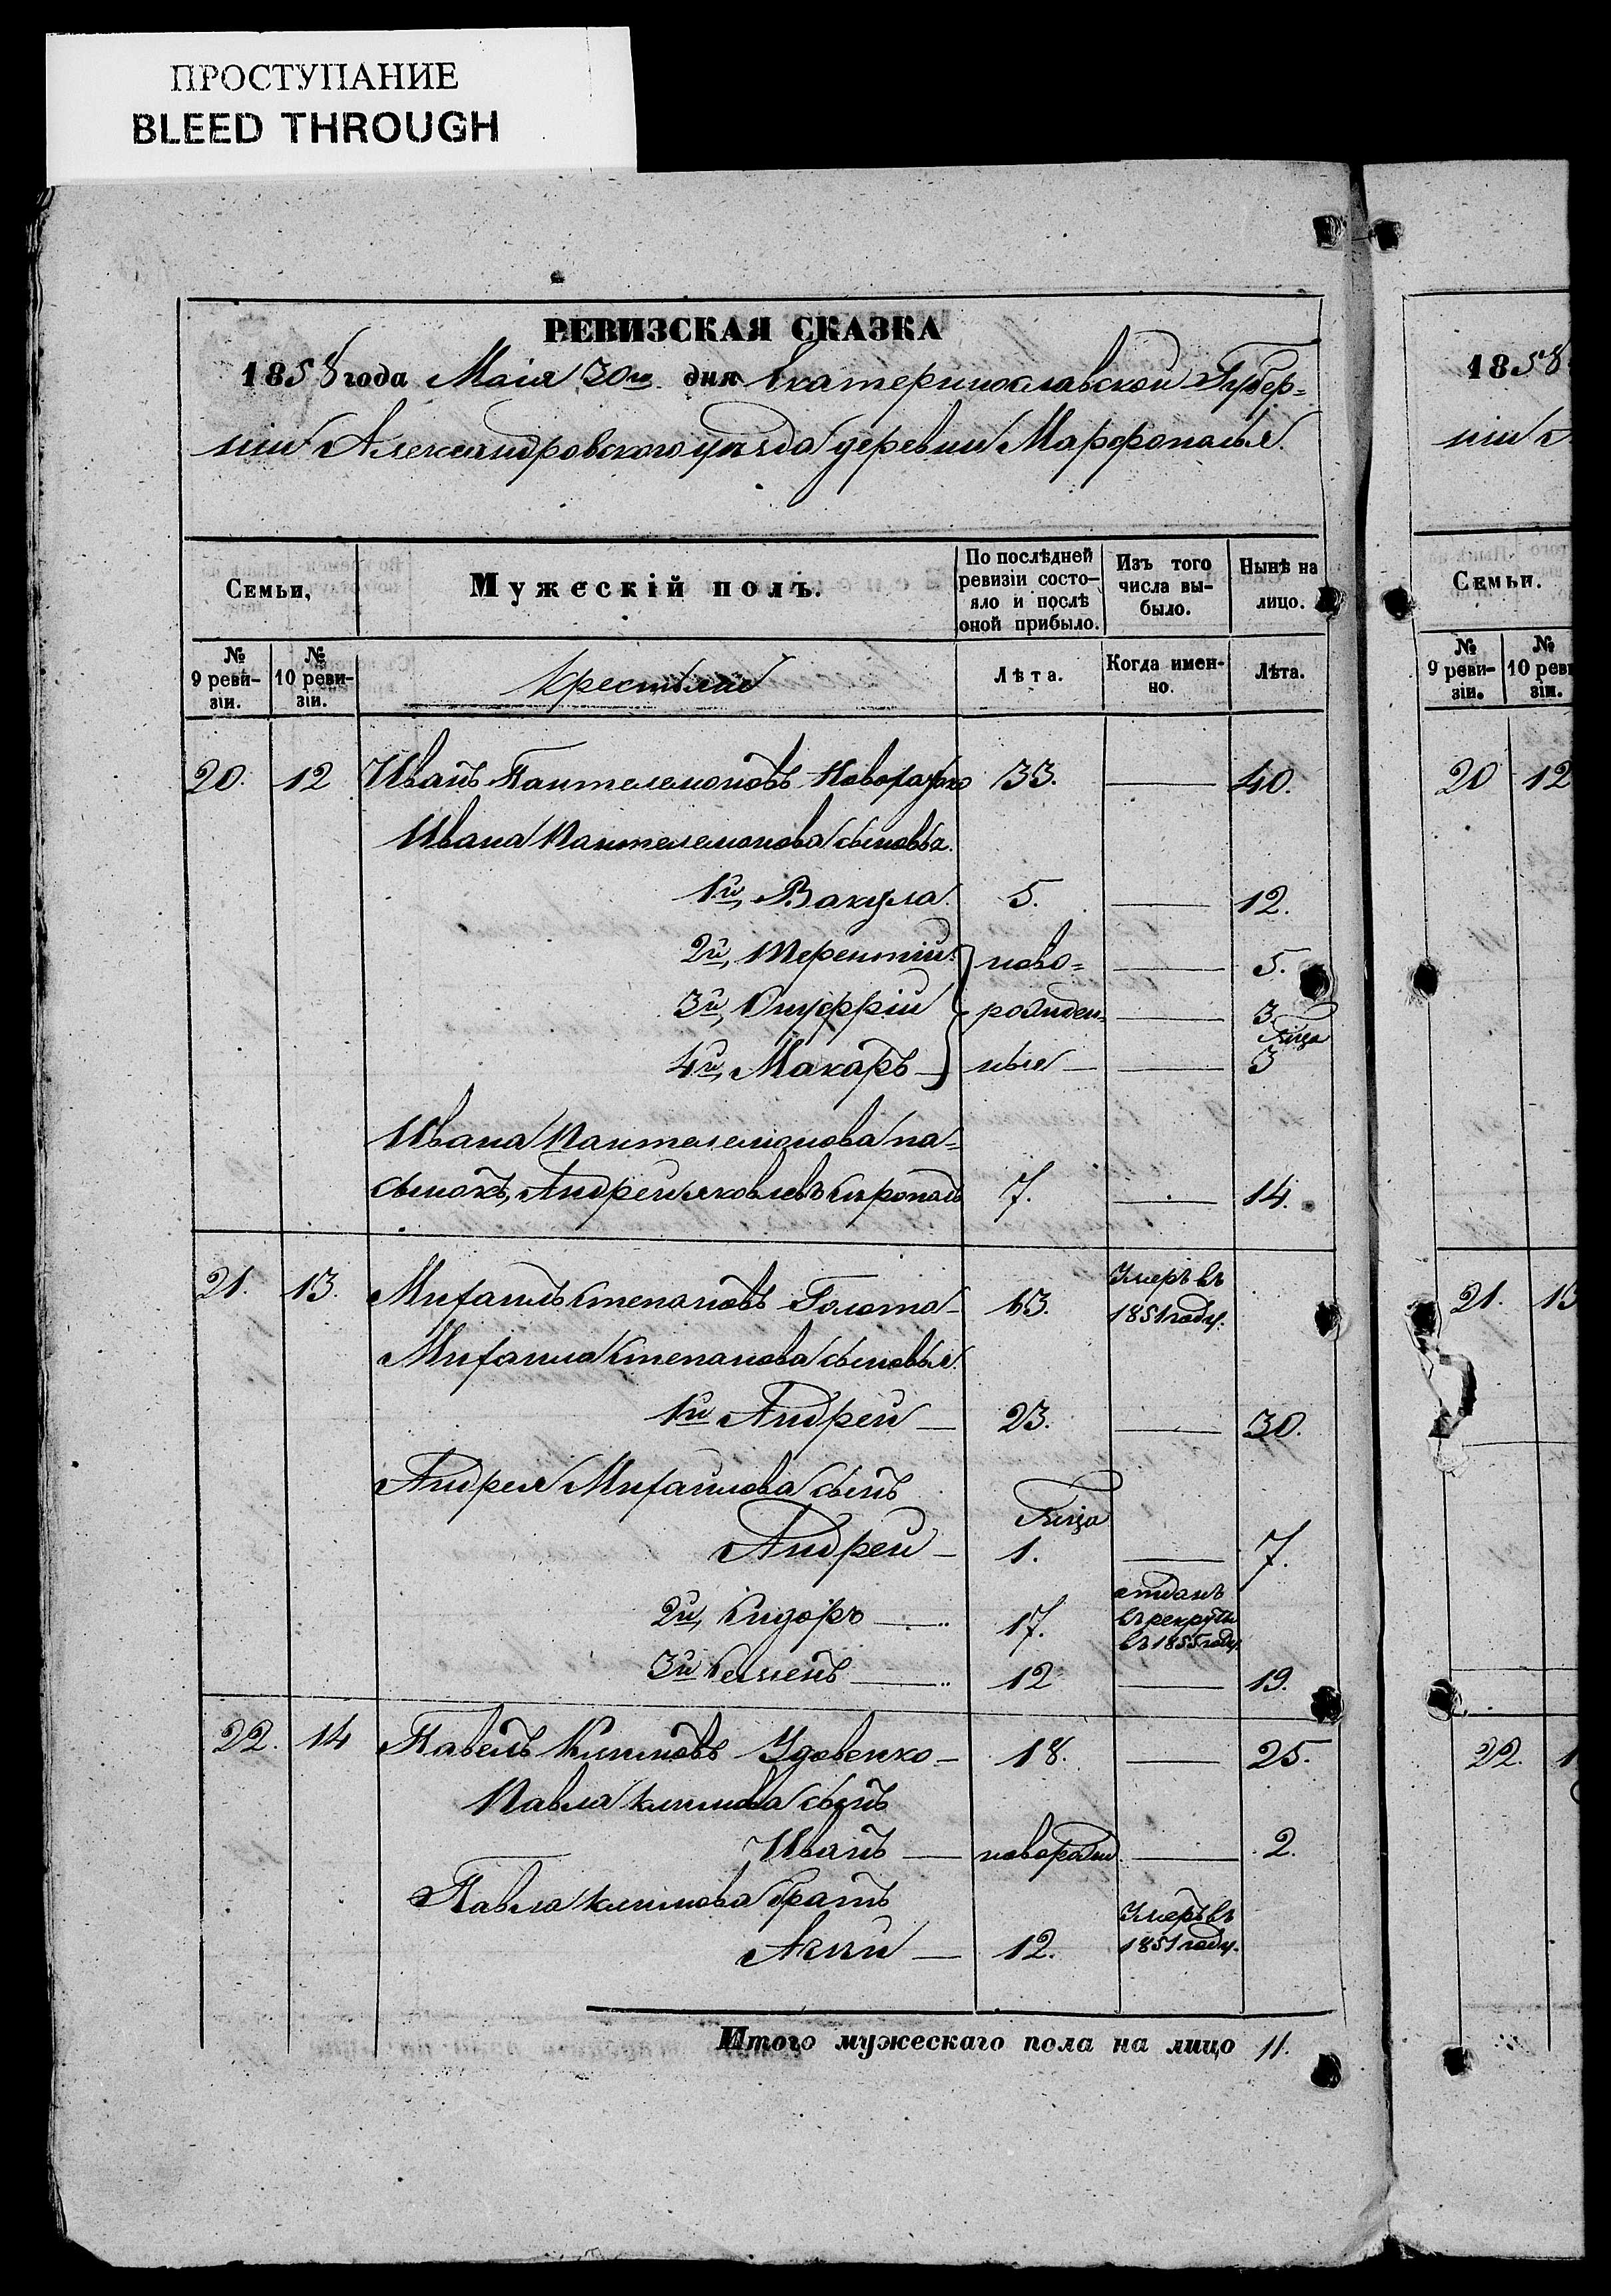 ПРОСТУПАНИЕ
BLEED THROUGH
РЕВИЗСКАЯ СКАЗКА
1858 года Маія 30го дня Екатеринославской Губер=
ніи Александровского уѣзда деревни Марфополья.
Семьи,
Мужескій полъ.
По послѣдней ревизіи состо-яло и послѣ оной прибыло.
Изъ того числа вы-было.
Нынѣ на лицо.
№ 9 реви-зіи.
№ 10 реви-зіи.
Крестьяне
Лѣта.
Когда имен-но.
Лѣта.
20. 12 Иванъ Пантелемоновъ 33. — 40.
Ивана Пантелемонова сыновья.
1й, Вакула. 5. — 12.
2й, Терентій ново= — 5.
3й, Онуфрій рожден= — 3
4й, Макаръ — ные — — 3
Ивана Пантелемонова па=
сынокъ, Андрей Яковлевъ 7. — 14.
21. 13. Михаилъ Степановъ Голота — 63. Умеръ въ 1851 году.
Михаила Степанова сыновья.
1й Андрей — 23. — 30.
Андрея Михайлова сынъ
Андрей — 1. — 7.
2й, Сидоръ — 17. отданъ въ рекруты въ 1855 году
3й Семенъ — 12 — 19.
22. 14 Павелъ Климовъ Удовенко — 18. — 25.
Павла Климова сынъ
Иванъ — новорожд — 2.
Павла Климова братъ
12. Умеръ въ 1851 году.
Итого мужескаго пола на лицо 11.
1858
ніи А
Семьи.
№ 9 реви-зіи.
№ 10 реви зіи.
20 12
21. 13
22. 1